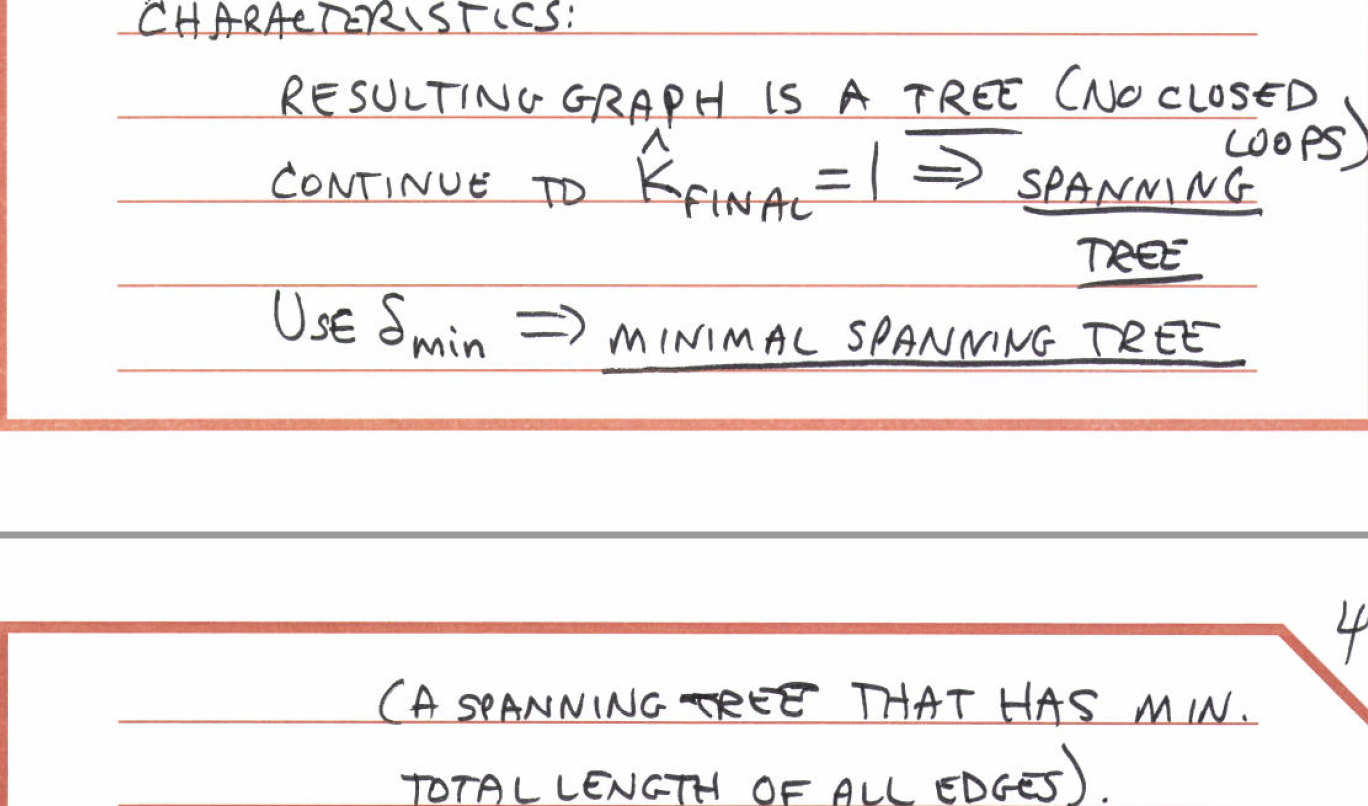 CHARACTERISTICS:
RESULTING GRAPH IS A TREE (NO CLOSED
LOOPS)
CONTINUE TO K̂FINAL = 1 ⇒ SPANNING
TREE
USE δmin ⇒ MINIMAL SPANNING TREE
4
(A SPANNING TREE THAT HAS MIN.
TOTAL LENGTH OF ALL EDGES).